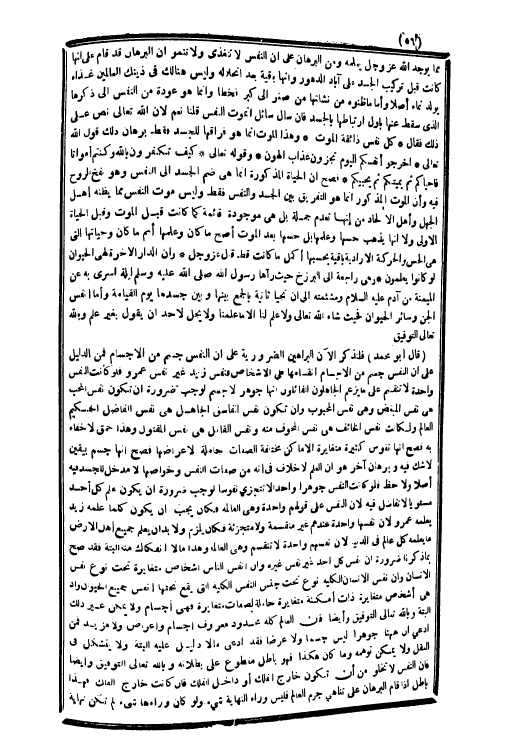 (٥٦)
مما يوجد الله عز وجل يعلمه ومن البرهان على ان النفس لا تتغذى ولا تنمو ان البرهان قد قام على انها
كانت قبل تركيب الجسد على آباد الدهور وانها باقية بعد انحلاله وليس هنالك في ذينك العالمين غذاء
يولد نماء أصلا وأما ماظنوه من نشأتها من صغر الى كبر فخطأ وانما هو عودة من النفس الى ذكرها
الذي سقط عنها بأول ارتباطها بالجسد فان سأل سائل أتموت النفس قلنا نعم لان الله تعالى نص على
ذلك فقال * كل نفس ذائقة الموت * وهذا الموت انما هو فراقها للجسد فقط برهان ذلك قول الله
تعالى * اخرجو أنفسكم اليوم تجزون عذاب الهون * وقوله تعالى * كيف تكفرون بالله وكنتم أمواتا
فاحياكم ثم يميتكم ثم يحييكم * فصح ان الحياة المذكورة انما هى ضم الجسد الى النفس وهو نفخ الروح
فيه وأن الموت المذكور انما هو التفريق بين الجسد والنفس فقط وليس موت النفس مما يظنه أهل
الجهل وأهل الالحاد من انها تعدم جملة بل هى موجودة قائمة كما كانت قبل الموت وقبل الحياة
الاولى ولا انها يذهب حسها وعلمها بل حسها بعد الموت أصح ما كان وعلمها أتم ما كان وحياتها التى
هى الحس والحركة الارادية باقية بحسبها أكمل ما كانت قط قال عز وجل * وان الدار الآخرة لهى الحيوان
لو كانوا يعلمون * وهى راجعة الى البرزخ حيث رآها رسول الله صلى الله عليه وسلم ليلة اسرى به عن
الميمنة من آدم عليه السلام ومشئمته الى ان تحيا ثانية بالجمع بينها وبين جسدها يوم القيامة وأما أنفس
الجن وسائر الحيوان فحيث شاء الله تعالى ولا علم لنا الا ما علمنا ولا يحل لاحد ان يقول بغير علم وبالله
تعالى التوفيق
(قال أبو محمد) فلنذكر الآن البراهين الضرورية على ان النفس جسم من الاجسام فمن الدليل
على ان النفس جسم من الاجسام انقسامها على الاشخاص فنفس زيد غير نفس عمرو فلو كانت النفس
واحدة لا تنقسم على مايزعم الجاهلون القائلون انها جوهر لا جسم لوجب ضرورة ان تكون نفس المحب
هى نفس المبغض وهى نفس المحبوب وان تكون نفس الفاسق الجاهل هى نفس الفاضل الحكيم
العالم ولكانت نفس الخائف هى نفس المخوف منه ونفس القاتل هى نفس المقتول وهذا حمق لا خفاء
به فصح انها نفوس كثيرة متغايرة الاماكن مختلفة الصفات حاملة لاعراضها فصح انها جسم بيقين
لا شك فيه و برهان آخر هو ان العلم لا خلاف فى انه من صفات النفس وخواصها لا مدخل للجسد فيه
أصلا ولا حظ فلو كانت النفس جوهرا واحدا لا تتجزى نفوسا لوجب ضرورة ان يكون علم كل أحد
مستويا لا تفاضل فيه لان النفس على قولهم واحدة وهى العالمة فكان يجب ان يكون كلما علمه زيد
يعلمه عمرو لان نفسها واحدة عندهم غير منقسمة ولا متجزئة فكان يلزم ولا بد ان يعلم جميع أهل الارض
ما يعلمه كل عالم فى الدنيا لان نفسهم واحدة لا تنقسم وهى العالمة وهذا مالا انفكاك منه البتة فقد صح
بما ذكرنا ضرورة ان نفس كل احد غير نفس غيره وان انفس الناس أشخاص متغايرة تحت نوع نفس
الانسان وان نفس الانسان الكلية نوع تحت جنس النفس الكلية التى يقع تحتها أنفس جميع الحيوان واذ
هى أشخص متغايرة ذات أمكنة متغايرة حاملة لصفات متغايرة فهى أجسام ولا يمكن غير ذلك
البتة وبالله تعالى التوفيق وأيضا فان العالم كله محدود معروف أجسام واعراض ولا مزيد فمن
ادعى ان ههنا جوهرا ليس جسما ولا عرضا فقد ادعى مالا دليل عليه البتة ولا يتشكل فى
العقل ولا يمكن توهمه وما كان هكذا فهو باطل مقطوع على بطلانه وبالله تعالى التوفيق وايضا
فان النفس لا تخلو من أن تكون خارج الفلك أو داخل الفلك فان كانت خارج الفلك فهذا
باطل اذ قام البرهان على تناهي جرم العالم فليس وراء النهاية شيء ولو كان وراءها شيء لم تكن نهاية